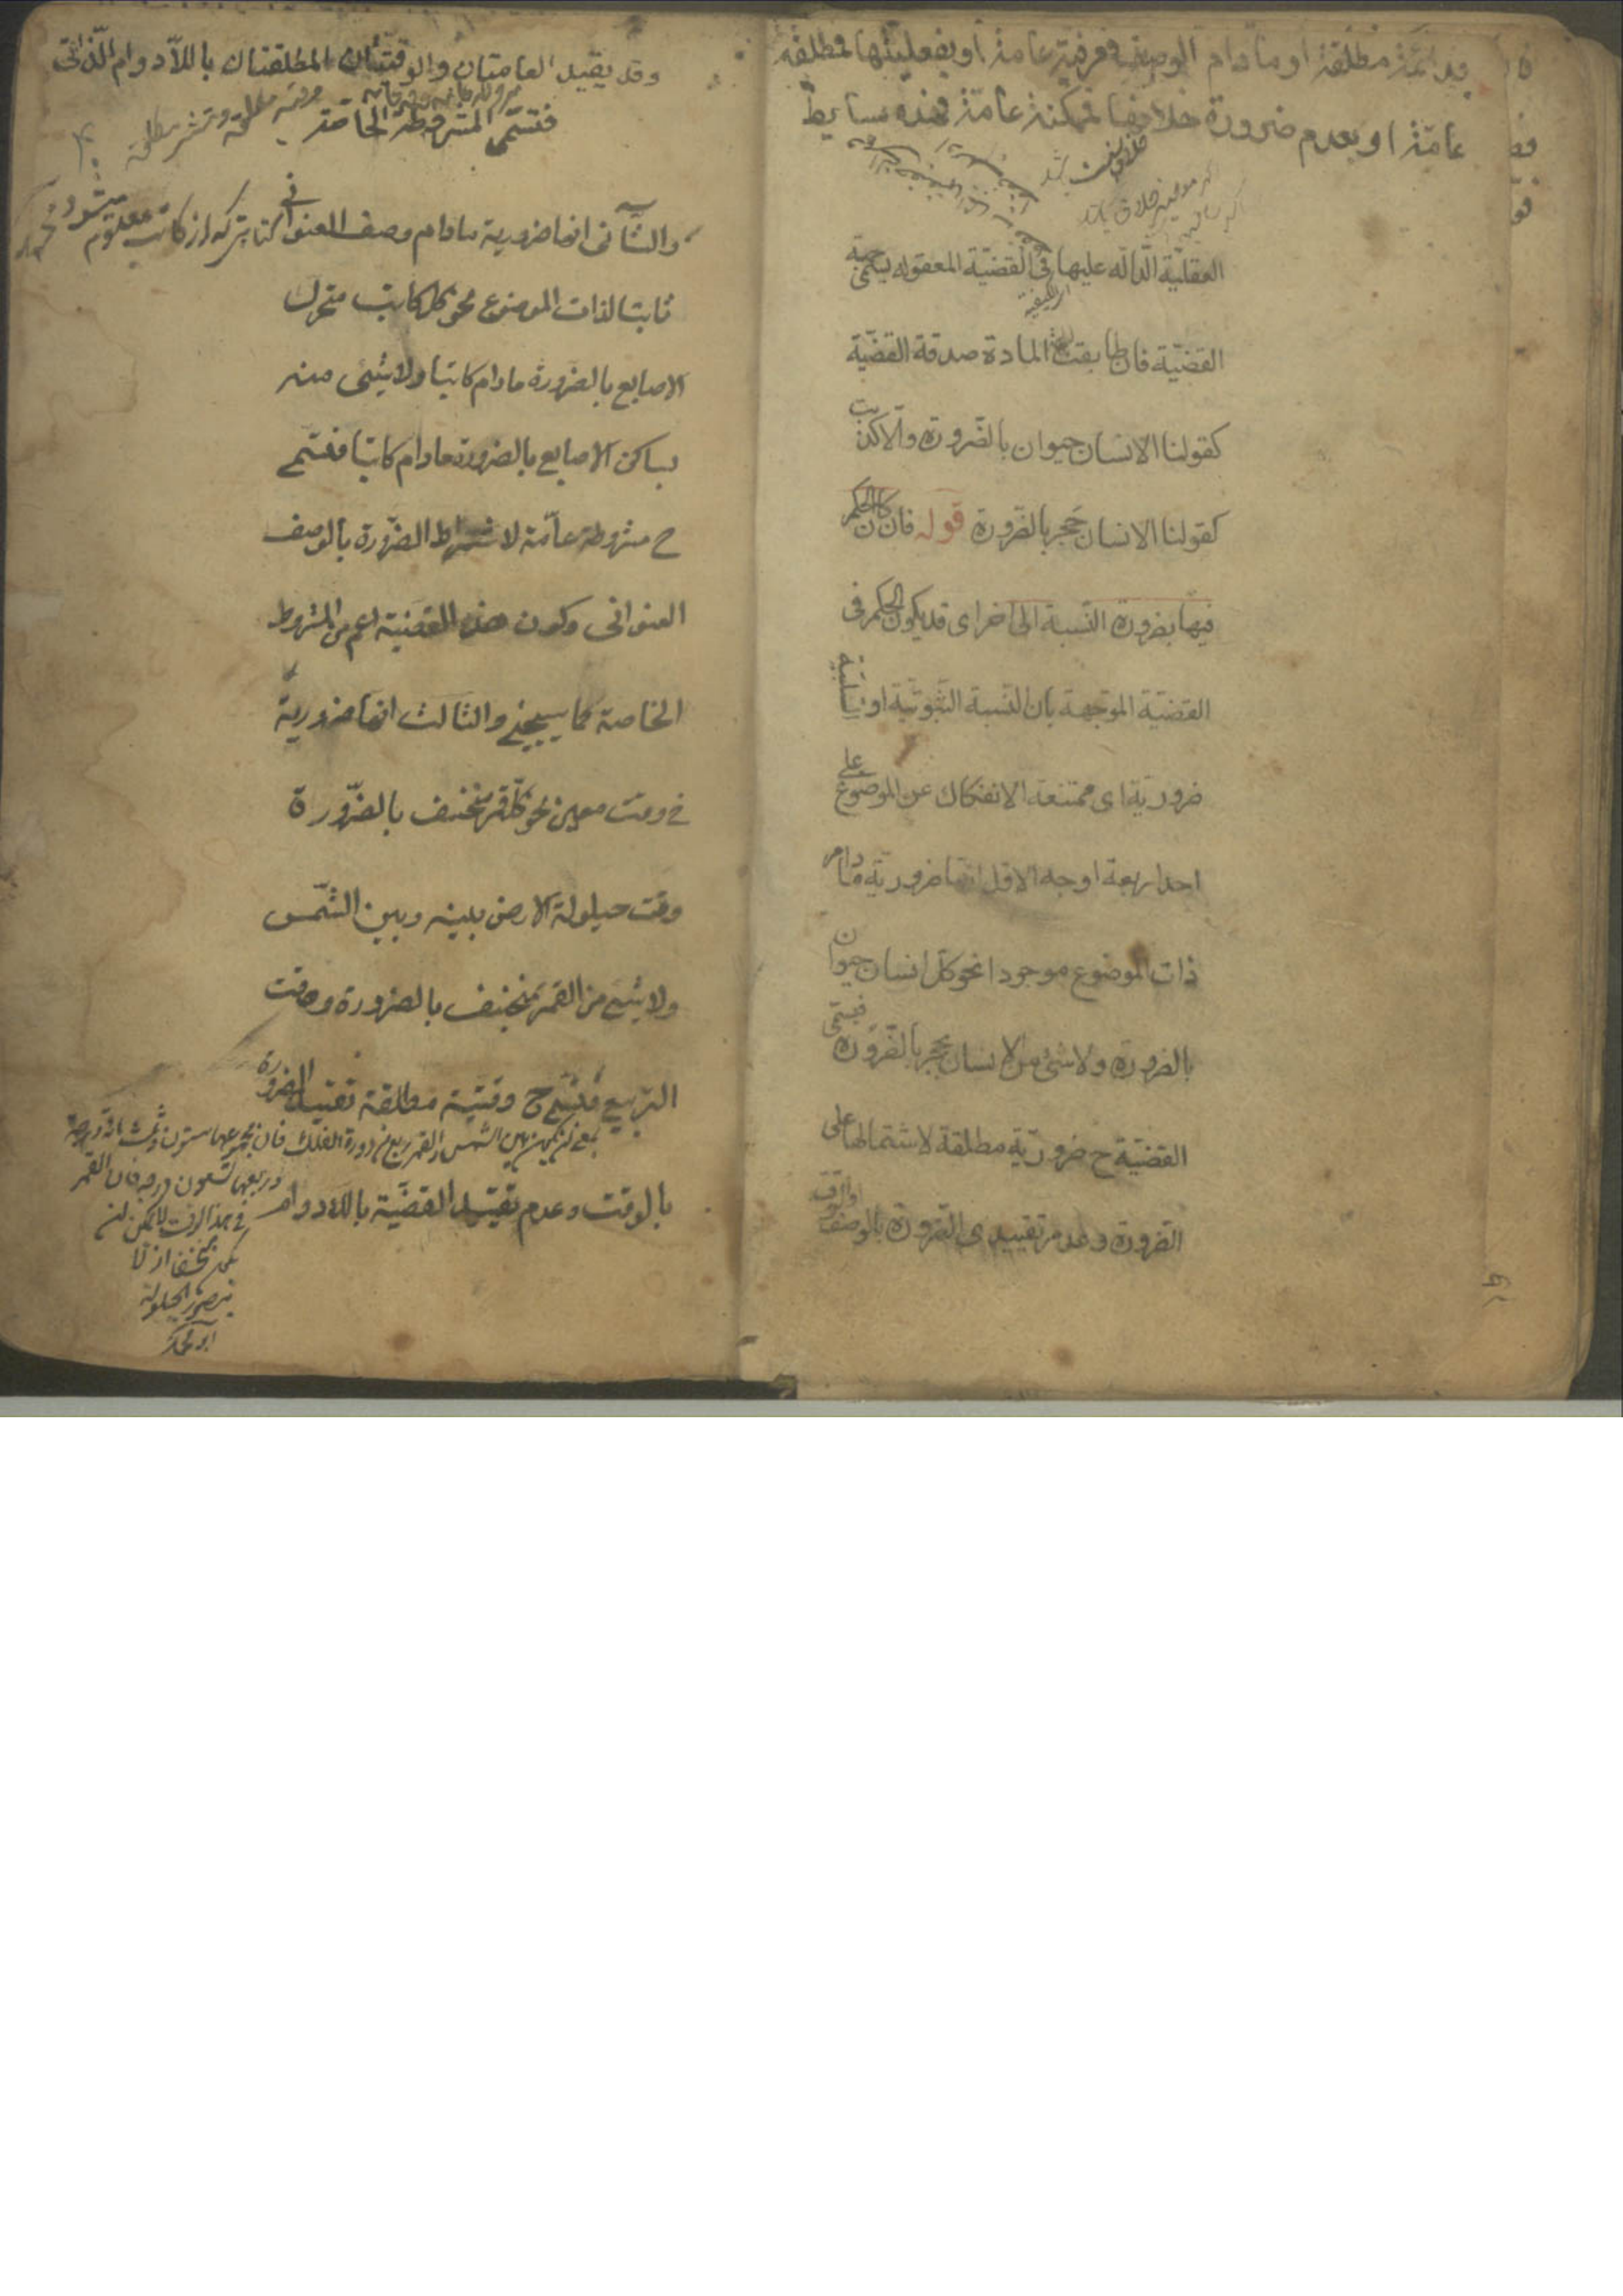 فدائمة مطلقة او ما دام الوصف فعرفية عامة او بفعليتها فمطلقة
عامة او بعدم ضرورة خلافها فممكنة عامة فهذه بسايط
العقلية الدالة عليها في القضية المعقوله يسمى جهة
القضية فان طابقت الجهة المادة صدقة القضية
كقولنا الانسان حيوان بالضرورة والا كذبت
كقولنا الانسان حجر بالضرورة قوله فان كان الحكم
فيها بضرورة النسبة الى اخر اى قد يكون الحكم فى
القضية الموجهة بان النسبة الثبوتية او السلبية
ضرورية اى ممتنعة الانفكاك عن الموضوع على
احد اربعة اوجه الاول انها ضرورية ما دام
ذات الموضوع موجودا نحو كل انسان حيوان
بالضرورة ولا شئ من الانسان بحجر بالضرورة فيسمى
القضية ح ضرورية مطلقة لاشتمالها على
الضرورة وعدم تقييدى الضرورة بالوصف والوقت
وقد يقيد العامتان والوقتيتان المطلقتان باللادوام الذاتى
فتسمى المشروطة الخاصة
والثانى انها ضرورية مادام وصف العنوانى
ثابتا لذات الموضوع نحو كل كاتب متحرك
الاصابع بالضرورة مادام كاتبا ولا شئ منه
بساكن الاصابع بالضرورة مادام كاتبا فتسمى
ح مشروطة عامة لاشتراط الضرورة بالوصف
العنوانى وكون هذه القضية اعم من المشروطة
الخاصة كما سيجئ والثالث انها ضرورية
فى وقت معين نحو كل قمر منخسف بالضرورة
وقت حيلولة الارض بينه وبين الشمس
ولا شئ من القمر بمنخسف بالضرورة وقت
التربيع فتسمى ح وقتية مطلقة تقييد الضرورة
بالوقت وعدم تقييد القضية باللادوام
وربعها تسعون درجه فان القمر
فى هذا الوقت لا يمكن ان
يكون منخسفا اذ لا
يتصور الحيلولة